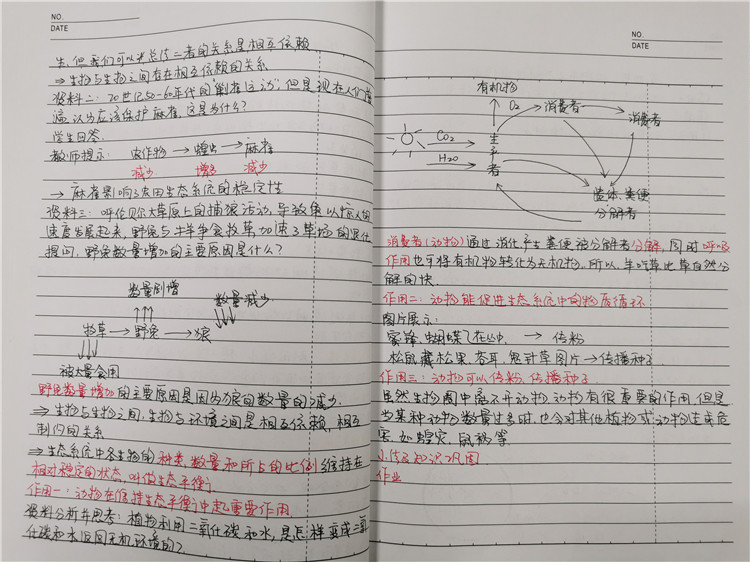 NO.
DATE
生,但我们可以来总结二者的关系是相互依赖
⇒生物与生物之间存在相互依赖的关系
资料二:20世纪50-60年代的"剿雀运动",但是现在人们普
遍认为应该保护麻雀,这是为什么?
学生回答.
教师提示: 农作物 → 蝗虫 → 麻雀
减少 增多 减少
→ 麻雀影响了农田生态系统的稳定性
资料三:呼伦贝尔大草原上的捕狼活动,导致兔以惊人的
速度发展起来,野兔与牛羊争食牧草加速了草场的退化
提问,野兔数量增加的主要原因是什么?
数量剧增 数量减少
牧草 → 野兔 → 狼
被大量食用
野兔数量增加的主要原因是因为狼的数量的减少.
⇒生物与生物之间,生物与环境之间是相互依赖,相互
制约的关系
⇒生态系统中各生物的种类,数量和所占的比例维持在
相对稳定的状态,叫做生态平衡
作用一:动物在维持生态平衡中起重要作用
资料分析并思考:植物利用二氧化碳和水,是怎样变成二氧
化碳和水返回无机环境的?
NO.
DATE
有机物
O₂ 消费者 消费者
CO₂ 生产者
H₂O
遗体、粪便
分解者
消费者(动物)通过消化产生粪便被分解者分解,同时呼吸
作用也可将有机物转化为无机物.所以,羊吃草比草自然分
解的快.
作用二:动物能促进生态系统中的物质循环
图片展示:
蜜蜂、蝴蝶飞在丛中, → 传粉
松鼠藏松果、苍耳、鬼针草图片 → 传播种子
作用三:动物可以传粉,传播种子
虽然生物圈中离不开动物,动物有很重要的作用,但是
当某种动物数量过多时,也会对其他植物或动物造成危
害,如蝗灾,鼠祸等.
小结及知识巩固
作业